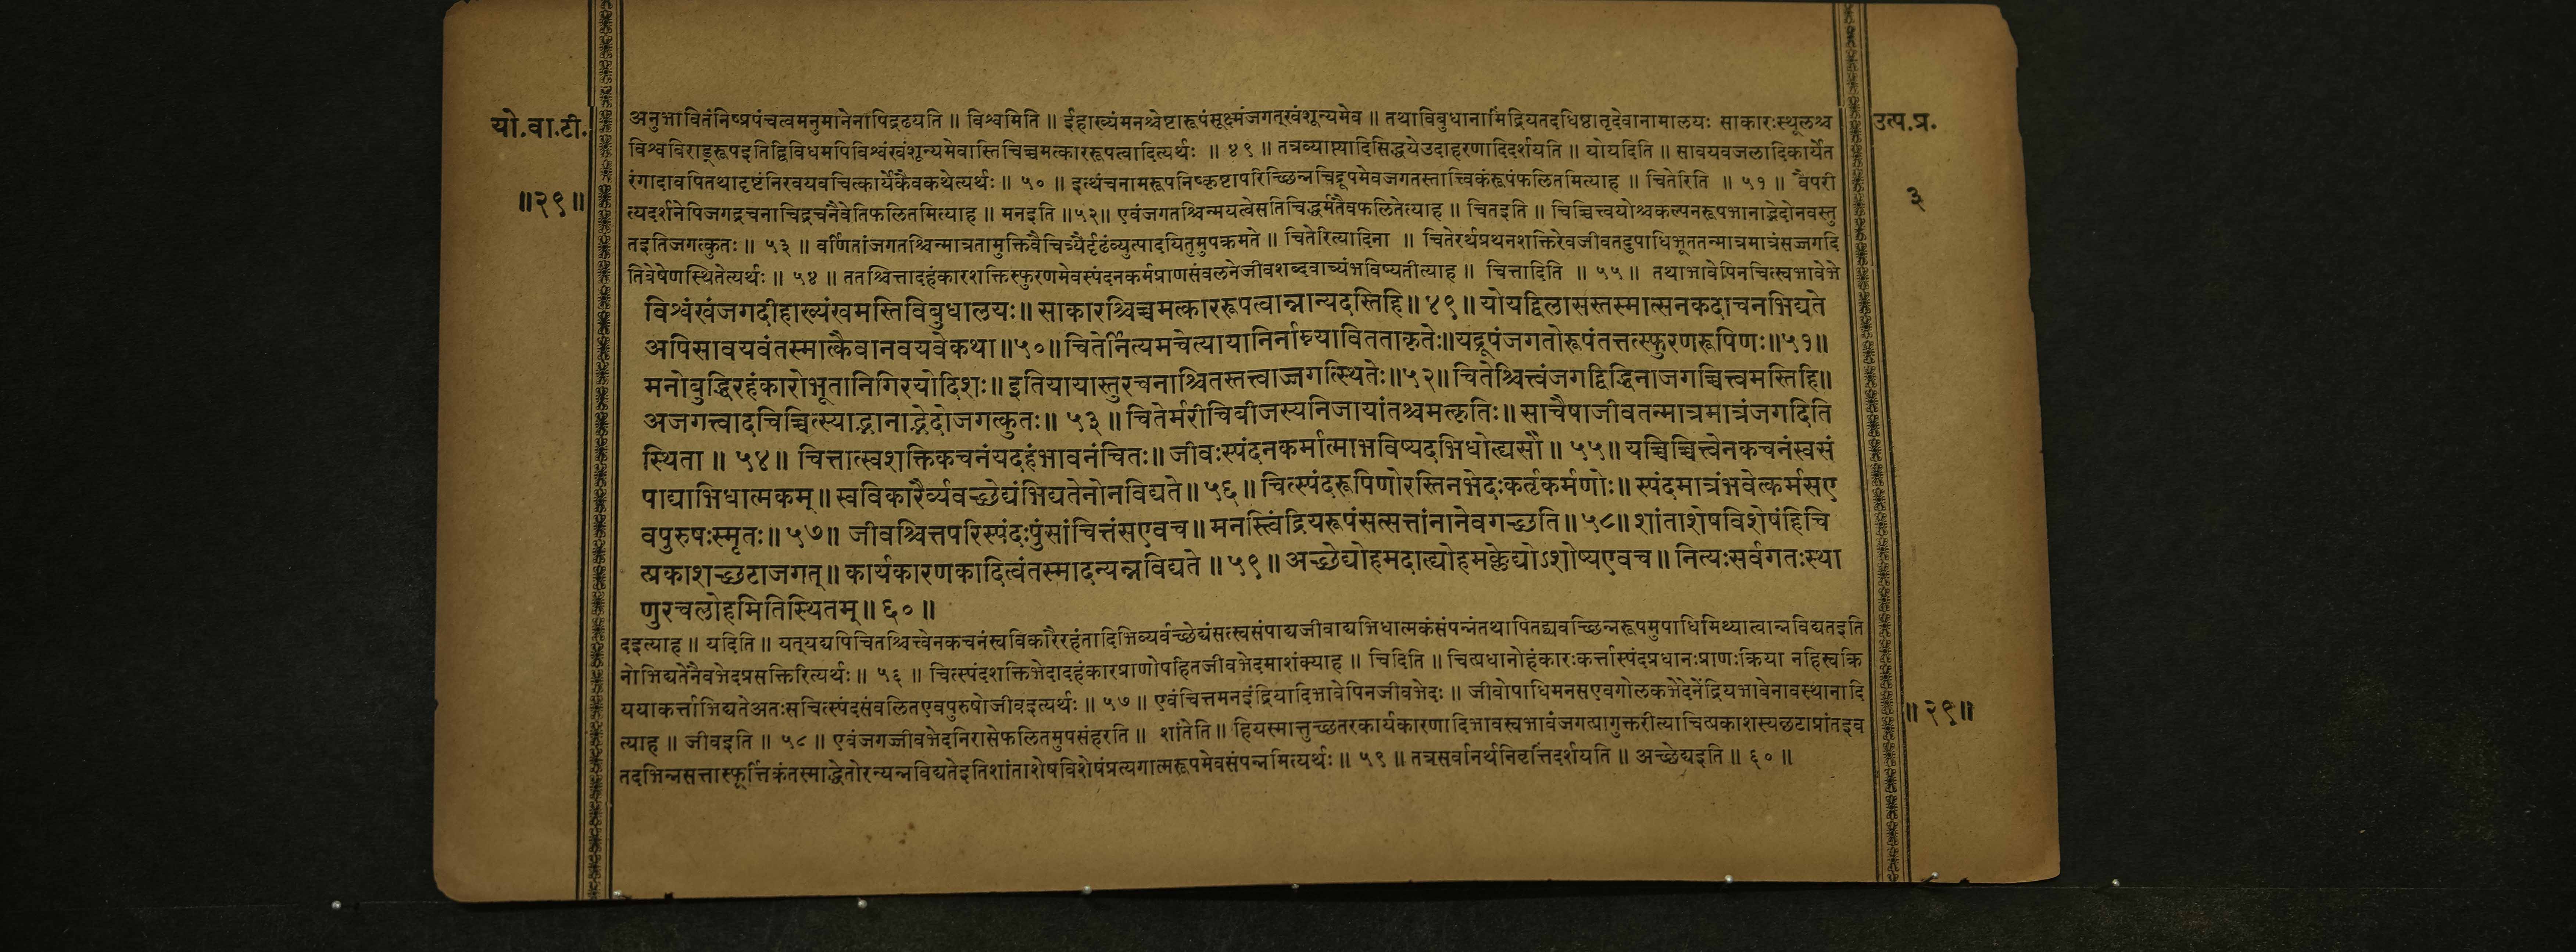 यो.वा.टी.
॥२९॥
अनुभावितंनिष्प्रपंचत्वमनुमानेनापिद्रढयति ॥ विश्वमिति ॥ ईहाख्यंमनश्चेष्टारूपंसूक्ष्मंजगत्खंशून्यमेव ॥ तथाविबुधानामिंद्रियतदधिष्ठातृदेवानामालयः साकारःस्थूलश्च
विश्वविराड्रूपइतिद्विविधमपिविश्वंखंशून्यमेवास्तिचिच्चमत्काररूपत्वादित्यर्थः ॥ ४९ ॥ तत्रव्याप्त्यादिसिद्धयेउदाहरणादिदर्शयति ॥ योयदिति ॥ सावयवजलादिकार्येत
रंगादावपितथादृष्टंनिरवयवचित्कार्येकैवकथेत्यर्थः ॥ ५० ॥ इत्थंचनामरूपनिष्कृष्टापरिच्छिन्नचिद्रूपमेवजगतस्तात्त्विकंरूपंफलितमित्याह ॥ चितेरिति ॥ ५१ ॥ वैपरी
त्यदर्शनेपिजगद्रचनाचिद्रचनैवेतिफलितमित्याह ॥ मनइति ॥५२॥ एवंजगतश्चिन्मयत्वेसतिचिद्धर्मतैवफलितेत्याह ॥ चितइति ॥ चिच्चित्त्वयोश्चकल्पनरूपभानाद्भेदोनवस्तु
तइतिजगत्कुतः ॥ ५३ ॥ वर्णितांजगतश्चिन्मात्रतामुक्तिवैचित्र्यैर्दृढंव्युत्पादयितुमुपक्रमते ॥ चितेरित्यादिना ॥ चितेरर्थप्रथनशक्तिरेवजीवतदुपाधिभूततन्मात्रमात्रंसज्जगदि
तिवेषेणस्थितेत्यर्थः ॥ ५४ ॥ ततश्चित्तादहंकारशक्तिस्फुरणमेवस्पंदनकर्मप्राणसंवलनेजीवशब्दवाच्यंभविष्यतीत्याह ॥ चित्तादिति ॥ ५५ ॥ तथाभावेपिनचित्स्वभावेभे
विश्वंखंजगदीहाख्यंखमस्तिविबुधालयः॥ साकारश्चिच्चमत्काररूपत्वान्नान्यदस्तिहि॥ ४९॥ योयद्विलासस्तस्मात्सनकदाचनभिद्यते
अपिसावयवंतस्मात्कैवानवयवेकथा॥५०॥ चितेर्नित्यमचेत्यायानिर्नाम्न्यावितताकृतेः॥यद्रूपंजगतोरूपंतत्तत्स्फुरणरूपिणः॥५१॥
मनोबुद्धिरहंकारोभूतानिगिरयोदिशः॥ इतियायास्तुरचनाश्चितस्तत्त्वाज्जगत्स्थितेः॥५२॥ चितेश्चित्त्वंजगद्विद्धिनाजगच्चित्त्वमस्तिहि॥
अजगत्त्वादचिच्चित्स्याद्भानाद्भेदोजगत्कुतः॥ ५३ ॥ चितेर्मरीचिबीजस्यनिजायांतश्चमत्कृतिः॥ साचैषाजीवतन्मात्रमात्रंजगदिति
स्थिता ॥ ५४॥ चित्तात्स्वशक्तिकचनंयदहंभावनंचितः॥ जीवःस्पंदनकर्मात्माभविष्यदभिधोत्द्यसौ॥ ५५॥ यच्चिच्चित्त्वेनकचनंस्वसं
पाद्याभिधात्मकम्॥ स्वविकारैर्व्यवच्छेद्यंभिद्यतेनोनविद्यते॥ ५६॥ चित्स्पंदरूपिणोरस्तिनभेदःकर्तृकर्मणोः॥ स्पंदमात्रंभवेत्कर्मसए
वपुरुषःस्मृतः॥ ५७॥ जीवश्चित्तपरिस्पंदःपुंसांचित्तंसएवच॥ मनस्त्विंद्रियरूपंसत्सत्तांनानेवगच्छति॥ ५८॥ शांताशेषविशेषंहिचि
त्प्रकाशच्छटाजगत्॥ कार्यकारणकादित्वंतस्मादन्यन्नविद्यते ॥ ५९॥ अच्छेद्योहमदाह्योहमक्लेद्योऽशोष्यएवच॥ नित्यःसर्वगतःस्था
णुरचलोहमितिस्थितम्॥ ६०॥
दइत्याह ॥ यदिति ॥ यत्यद्यपिचितश्चित्त्वेनकचनंस्वविकारैरहंतादिभिर्व्यवच्छेद्यंसत्स्वसंपाद्यजीवाद्यभिधात्मकंसंपन्नंतथापितद्व्यवच्छिन्नरूपमुपाधिमिथ्यात्वान्नविद्यतइति
नोभिद्यतेनैवभेदप्रसक्तिरित्यर्थः ॥ ५६ ॥ चित्स्पंदशक्तिभेदादहंकारप्राणोपहितजीवभेदमाशंक्याह ॥ चिदिति ॥ चित्प्रधानोहंकारःकर्त्तास्पंदप्रधानःप्राणःक्रिया नहिस्वक्रि
ययाकर्त्ताभिद्यतेअतःसचित्स्पंदसंवलितएवपुरुषोजीवइत्यर्थः ॥ ५७ ॥ एवंचित्तमनइंद्रियादिभावेपिनजीवभेदः ॥ जीवोपाधिमनसएवगोलकभेदेनेंद्रियभावेनावस्थानादि
त्याह ॥ जीवइति ॥ ५८ ॥ एवंजगज्जीवभेदनिरासेफलितमुपसंहरति ॥ शांतेति ॥ हियस्मात्तुच्छतरकार्यकारणादिभावस्वभावंजगत्प्रागुक्तरीत्याचित्प्रकाशस्यछटाप्रांतइव
तदभिन्नसत्तास्फूर्त्तिकंतस्माद्धेतोरन्यन्नविद्यतेइतिशांताशेषविशेषंप्रत्यगात्मरूपमेवसंपन्नमित्यर्थः ॥ ५९ ॥ तत्रसर्वानर्थनिवृत्तिदर्शयति ॥ अच्छेद्यइति ॥ ६० ॥
उत्प.प्र.
३
॥२९॥